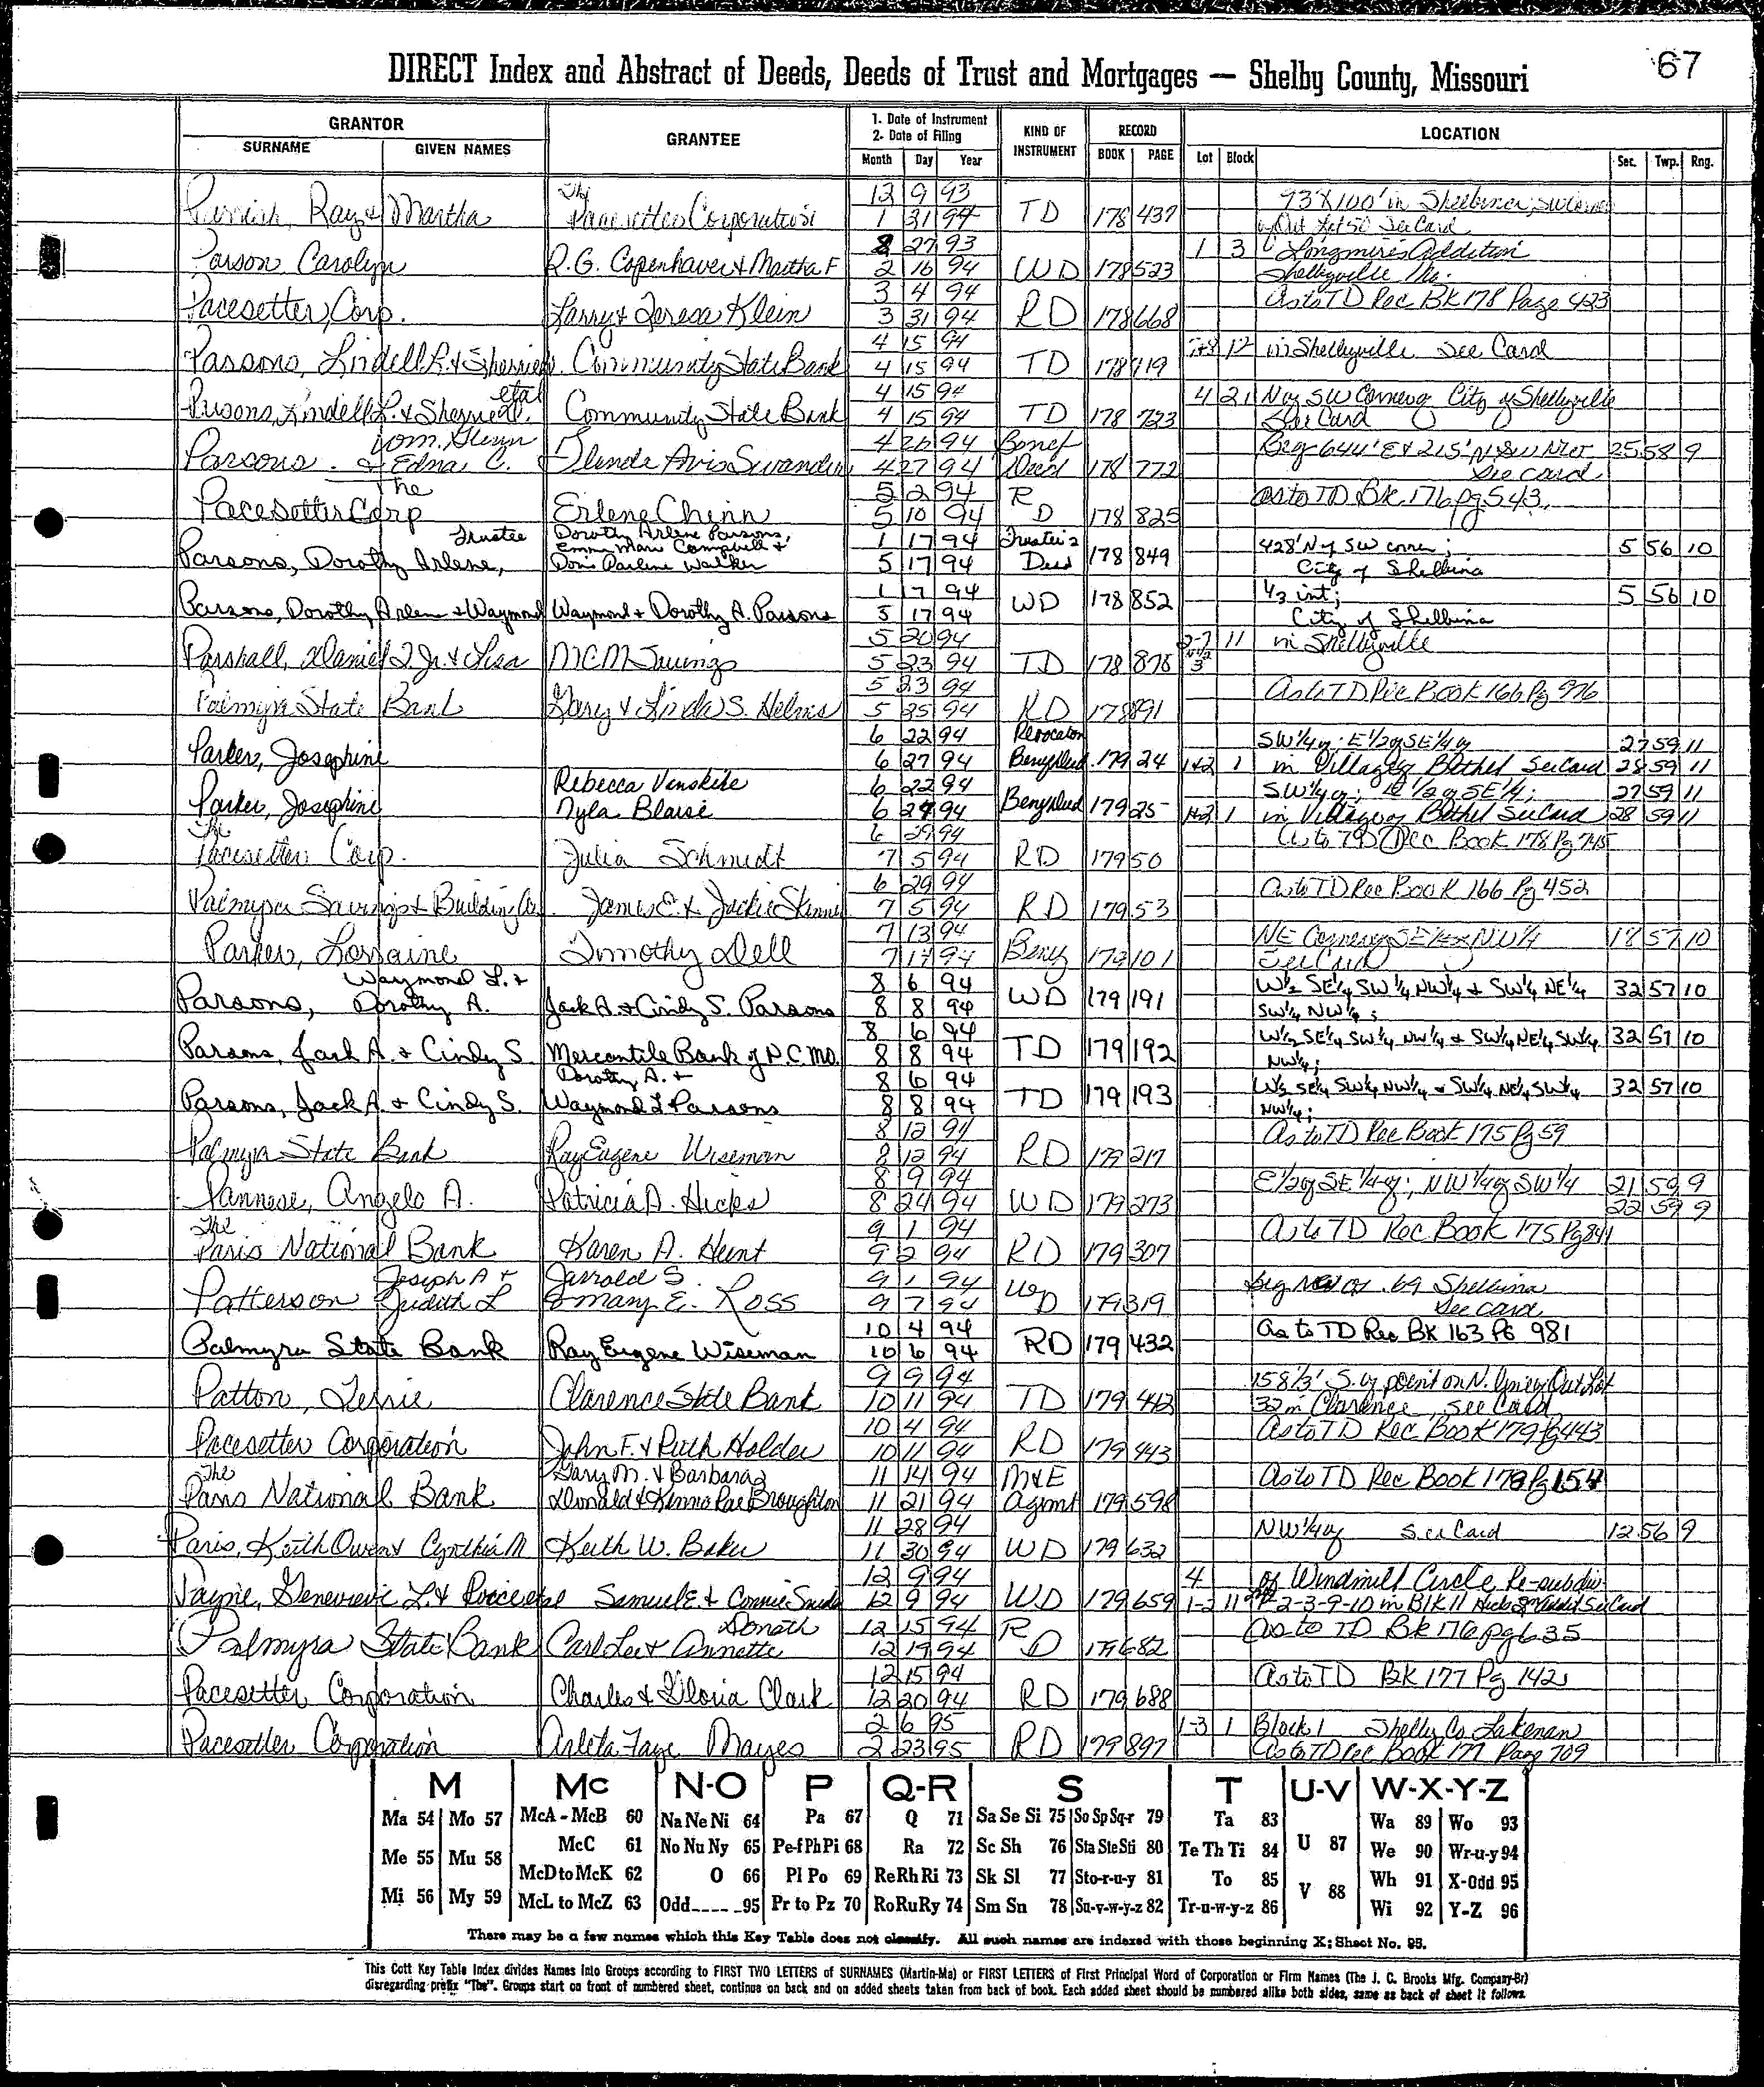 67
DIRECT Index and Abstract of Deeds, Deeds of Trust and Mortgages — Shelby County, Missouri
GRANTOR GRANTEE 1. Date of Instrument 2- Date of Filing KIND OF INSTRUMENT RECORD LOCATION
SURNAME GIVEN NAMES Month Day Year BOOK PAGE Lot Block Sec. Twp. Rng.
The 12 9 93 93'X100' in Shelbina, SW Corner
Ray & Martha Pacesetter Corporation 1 31 94 TD 178 437 Out Lot 50 See Card
8 27 93 1 3 Longmire's Addition
Parson Carolyn R.G. Copenhaver & Martha F 2 16 94 WD 178 523 Shelbyville Mo.
3 4 94 As to TD Rec Bk 178 Page 423
Pacesetter, Corp. Larry & Teresa Klein 3 31 94 RD 178 668
4 15 94 12 in Shelbyville See Card
Parsons, Lindell R. & Community State Bank 4 15 94 TD 178 719
etal 4 15 94 4 21 N of SW Corner of City of Shelbyville
Parsons, Lindell R. & Community State Bank 4 15 94 TD 178 723 See Card
Glenn 4 26 94 Benef Beg 644' E & 215' N 25 58 9
Parsons & Edna C. Glenda Avis 4 27 94 Deed 178 772 See card
The 5 2 94 R as to TD Bk 176 pg 543
Pacesetter Corp Erlene Chinn 5 10 94 D 178 825
Trustee Dorothy Arlene Parsons, 1 17 94 Trustee's 428' N of SW corner; 5 56 10
Parsons, Dorothy Arlene, Emma Marie Campbell & Doris Parlene Walker 5 17 94 Deed 178 849 City of Shelbina
1 7 94 1/3 int; 5 56 10
Parsons, Dorothy Arlene & Waymond Waymond & Dorothy A. Parsons 5 17 94 WD 178 852 City of Shelbina
5 20 94 11 in Shelbyville
Parshall, Daniel J. Jr. & Lisa MCM Savings 5 23 94 TD 178 878 3
5 23 94 As to TD Rec Book 166 Pg 976
Palmyra State Bank Gary & Linda S. Helms 5 25 94 RD 178 891
6 22 94 Revocation SW 1/4 of; E 1/2 of SE 1/4 of 27 59 11
Parker, Josephine 6 27 94 Benef Deed 179 24 1+2 1 in Village of Bethel See Card 28 59 11
Rebecca Venskike 6 22 94 SW 1/4 of; E 1/2 of SE 1/4; 27 59 11
Parker, Josephine Nyla Blaise 6 27 94 Benef Deed 179 25 1+2 1 in Village of Bethel See Card 28 59 11
The 6 29 94 As to TD Rec Book 178 Pg 745
Pacesetter Corp. Julia Schmidt 7 5 94 RD 179 50
6 29 94 As to TD Rec Book 166 Pg 452
Palmyra Savings & Building James E. & Jackie 7 5 94 RD 179 53
7 13 94 NE Corner of SE 1/4 NW 1/4 57 10
Parker, Lorraine Timothy Dell 7 94 Benef 101 See Card
Waymond L. & 8 6 94 W 1/2 SE 1/4 SW 1/4 NW 1/4 & SW 1/4 NE 1/4 32 57 10
Parsons, Dorothy A. Jack A. & Cindy S. Parsons 8 8 94 WD 179 191 SW 1/4 NW 1/4;
8 6 94 W 1/2 SE 1/4 SW 1/4 NW 1/4 & SW 1/4 NE 1/4 SW 1/4 32 57 10
Parsons, Jack A. & Cindy S. Mercantile Bank of N.C. MO. 8 8 94 TD 179 192 NW 1/4;
Dorothy A. & 8 6 94 W 1/2 SE 1/4 SW 1/4 NW 1/4 & SW 1/4 NE 1/4 SW 1/4 32 57 10
Parsons, Jack A. & Cindy S. Waymond L Parsons 8 8 94 TD 179 193 NW 1/4;
8 12 94 As to TD Rec Book 175 Pg 59
Palmyra State Bank Ray Eugene Wiseman 8 12 94 RD 179 217
8 9 94 E 1/2 of SE 1/4 of; NW 1/4 of SW 1/4 21 59 9
Pannese, Angelo A. Patricia A. Hicks 8 24 94 WD 179 273 22 59 9
The 9 1 94 As to TD Rec Book 175 Pg 841
Paris National Bank Karen A. Hunt 9 2 94 RD 179 307
Joseph A & Jerrold S. 9 1 94 Beg of 69 Shelbina
Patterson Judith L & Mary E. Ross 9 7 94 WD 179 319 See card
10 4 94 As to TD Rec BK 163 PG 981
Palmyra State Bank Ray Eugene Wiseman 10 6 94 RD 179 432
9 9 94 158 1/3' S. of point on N. line of Out Lot
Patton, Clarence State Bank 10 11 94 TD 179 442 32 in Clarence, see Card
10 4 94 As to TD Rec Book 179 Pg 443
Pacesetter Corporation John F. & Ruth Holder 10 11 94 RD 179 443
The Gary M. & Barbara 11 14 94 M&E As to TD Rec Book 178 Pg 154
Paris National Bank Donald & Broughton 11 21 94 Agmt 179 598
11 28 94 NW 1/4 of See Card 12 56 9
Paris, Keith Owen & Cynthia M Keith W. Baker 11 30 94 WD 179 632
12 9 94 4 of Windmill Circle Re-subdiv
Payne, Genevieve L. & etal Samuel E. & Connie 12 9 94 WD 179 659 1-2 11 1-2-3-9-10 in Blk 11 See Card
Donath 12 15 94 R As to TD Bk 176 pg 635
Palmyra State Bank Carl Lee & Annette 12 19 94 D 179 682
12 15 94 As to TD BK 177 Pg 142
Pacesetter Corporation Charles & Gloria Clark 12 20 94 RD 179 688
2 6 95 1-3 1 Block 1 Shelby Co. Lakenan
Pacesetter Corporation Arleta Faye Mayes 2 23 95 RD 179 897 As to TD Rec Book 177 Page 709
M Mc N-O P Q-R S T U-V W-X-Y-Z
Ma 54 Mo 57 McA-McB 60 Na Ne Ni 64 Pa 67 Q 71 Sa Se Si 75 So Sp Sq-r 79 Ta 83 Wa 89 Wo 93
McC 61 No Nu Ny 65 Pe-f Ph Pi 68 Ra 72 Sc Sh 76 Sta Ste Sti 80 Te Th Ti 84 U 87 We 90 Wr-u-y 94
Me 55 Mu 58 McD to McK 62 O 66 Pl Po 69 Re Rh Ri 73 Sk Sl 77 Sto-r-u-y 81 To 85 Wh 91 X-Odd 95
Mi 56 My 59 McL to McZ 63 Odd 95 Pr to Pz 70 Ro Ru Ry 74 Sm Sn 78 Su-v-w-y-z 82 Tr-u-w-y-z 86 V 88 Wi 92 Y-Z 96
There may be a few names which this Key Table does not classify. All such names are indexed with those beginning X; Sheet No. 95.
This Cott Key Table Index divides Names Into Groups according to FIRST TWO LETTERS of SURNAMES (Martin-Ma) or FIRST LETTERS of First Principal Word of Corporation or Firm Names (The J. C. Brooks Mfg. Company-Br)
disregarding prefix "The". Groups start on front of numbered sheet, continue on back and on added sheets taken from back of book. Each added sheet should be numbered alike both sides, same as back of sheet it follows.